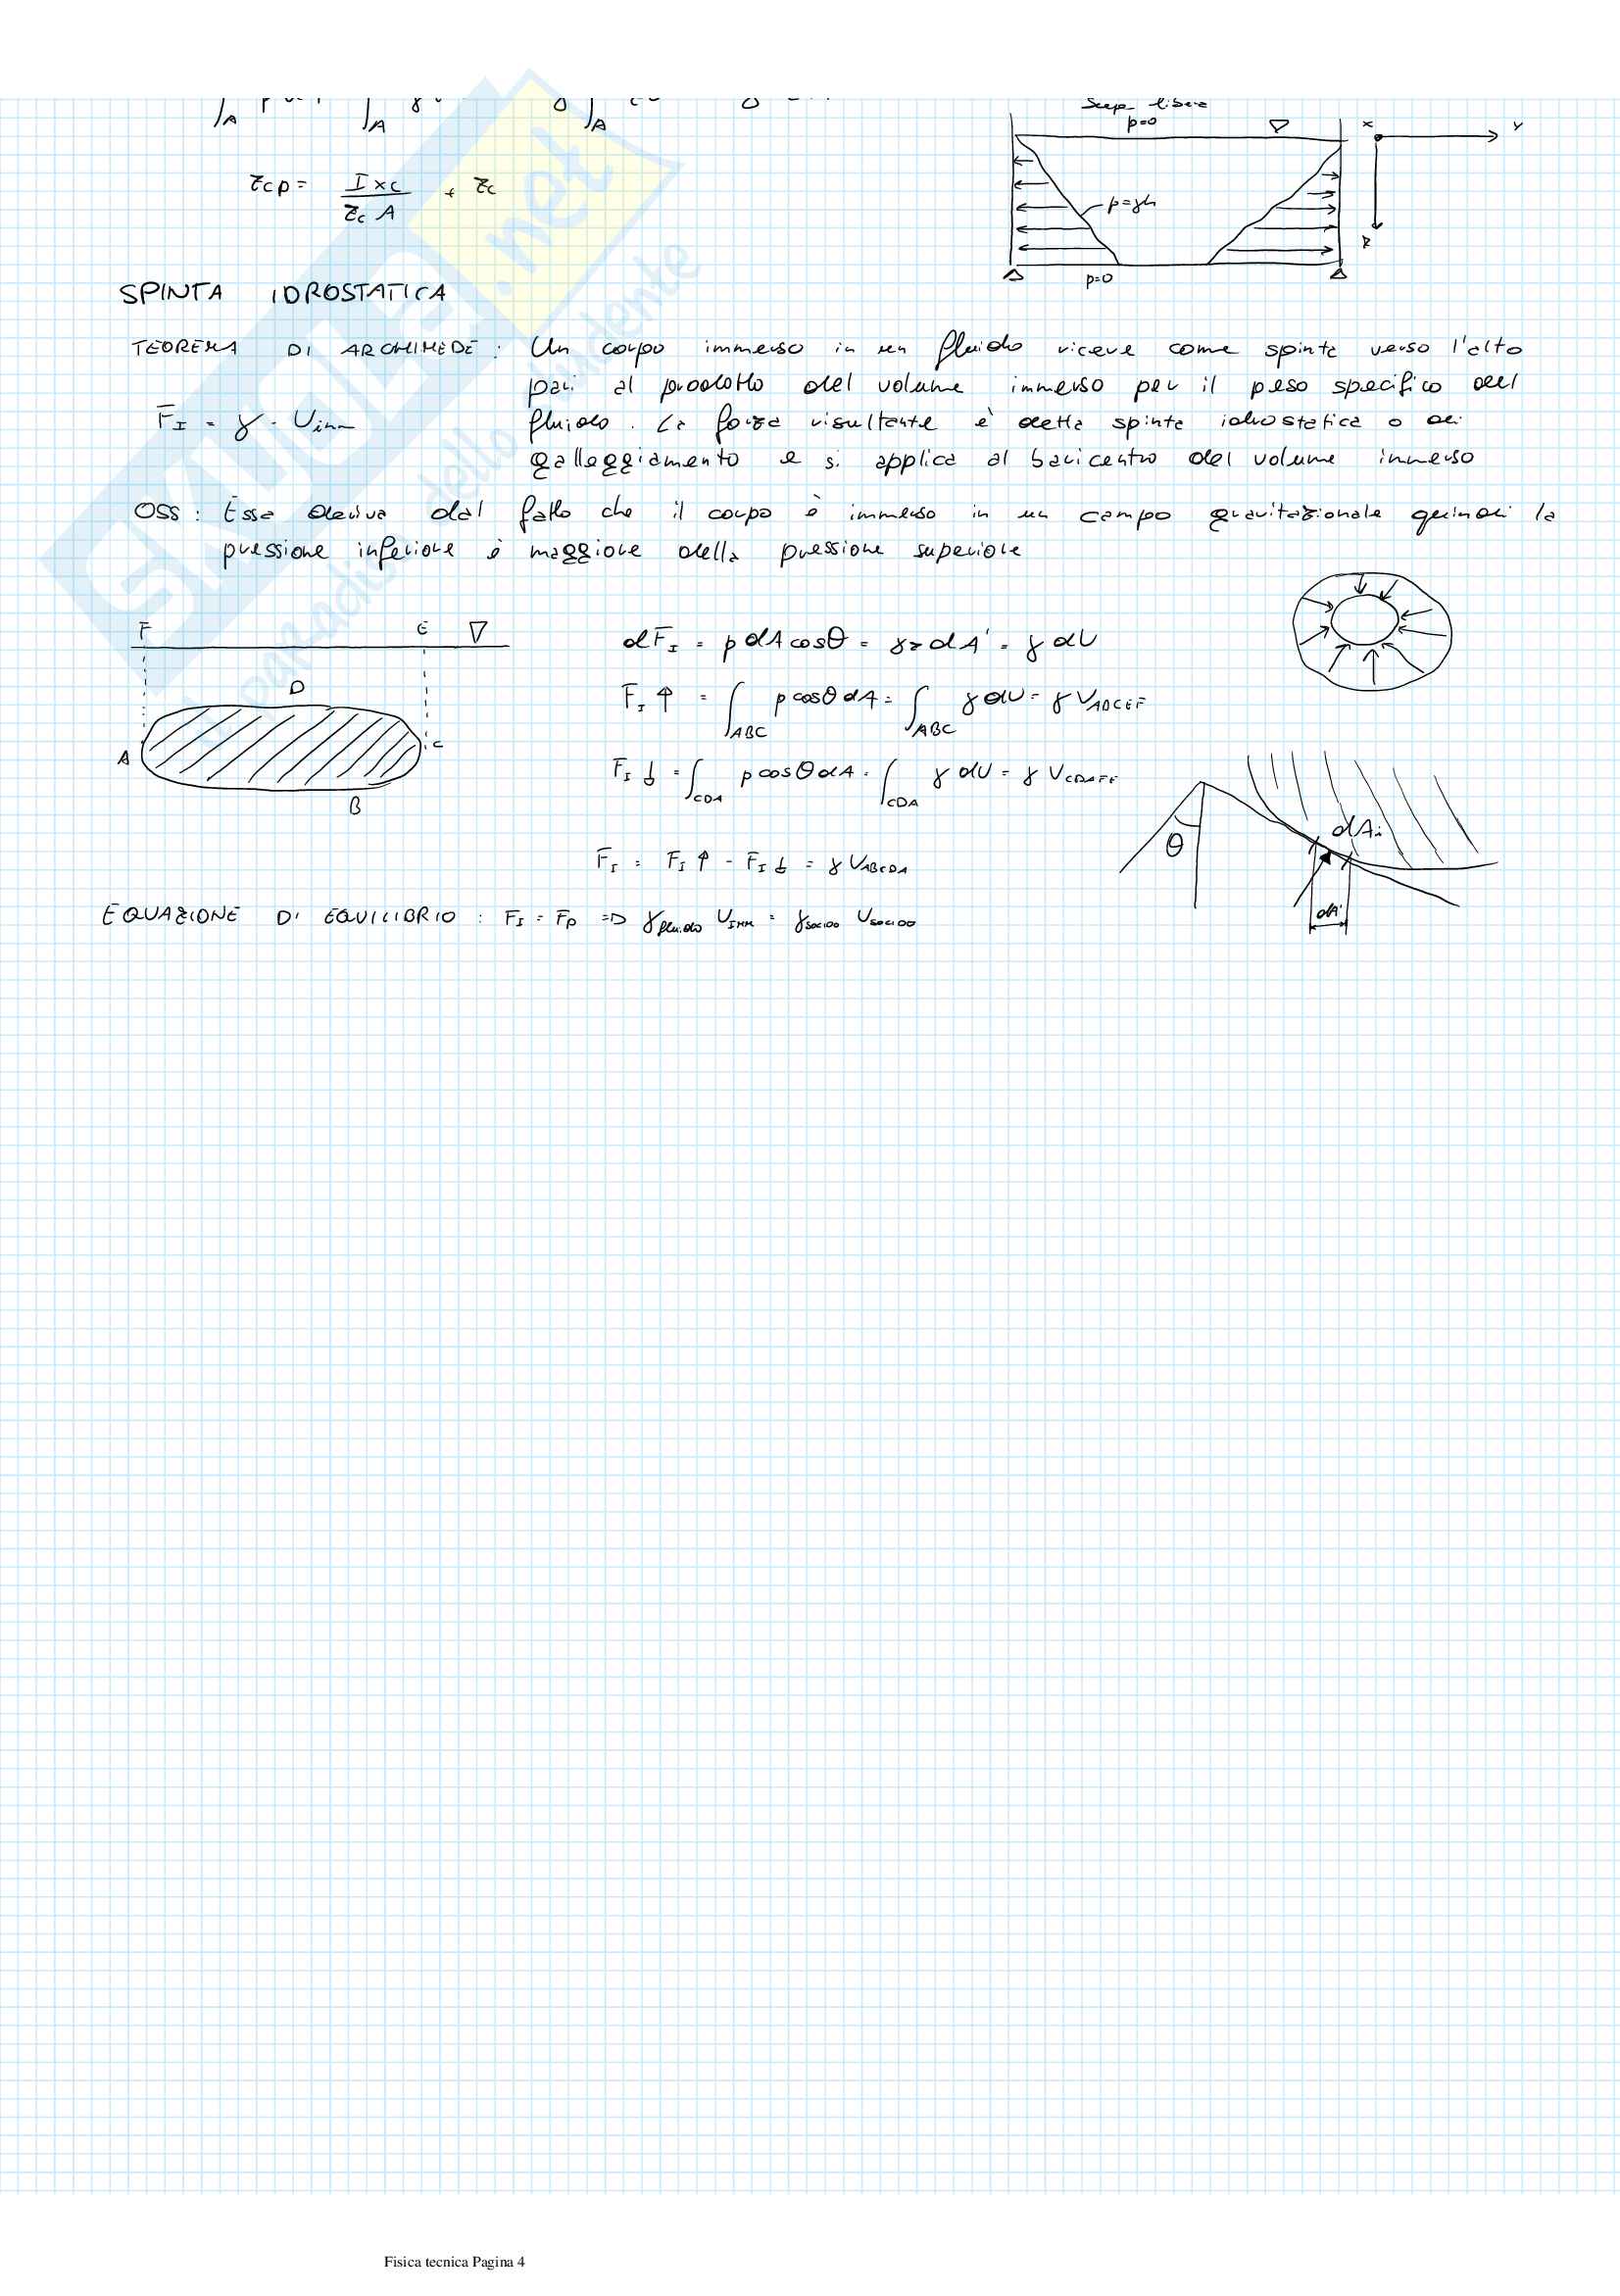 Sup. libera
p=0
x y
z
p=γh
p=0
z_cp = I_xc / (z_c A) + z_c
SPINTA IDROSTATICA
TEOREMA DI ARCHIMEDE: Un corpo immerso in un fluido riceve come spinta verso l'alto
pari al prodotto del volume immerso per il peso specifico del
F_I = γ · V_imm
fluido. La forza risultante è detta spinta idrostatica o di
galleggiamento e si applica al baricentro del volume immerso
OSS: Essa deriva dal fatto che il corpo è immerso in un campo gravitazionale quindi la
pressione inferiore è maggiore della pressione superiore
F E
D
A C
B
dF_I = p dA cosθ = γz dA' = γ dV
F_I↑ = ∫_ABC p cosθ dA = ∫_ABC γ dV = γ V_ABCEF
F_I↓ = ∫_CDA p cosθ dA = ∫_CDA γ dV = γ V_CDAFE
F_I = F_I↑ - F_I↓ = γ V_ABCDA
θ dAi
dA'
EQUAZIONE DI EQUILIBRIO: F_I = F_P => γ_fluido V_IMM = γ_SOLIDO V_SOLIDO
SKUOLA.net
Fisica tecnica Pagina 4